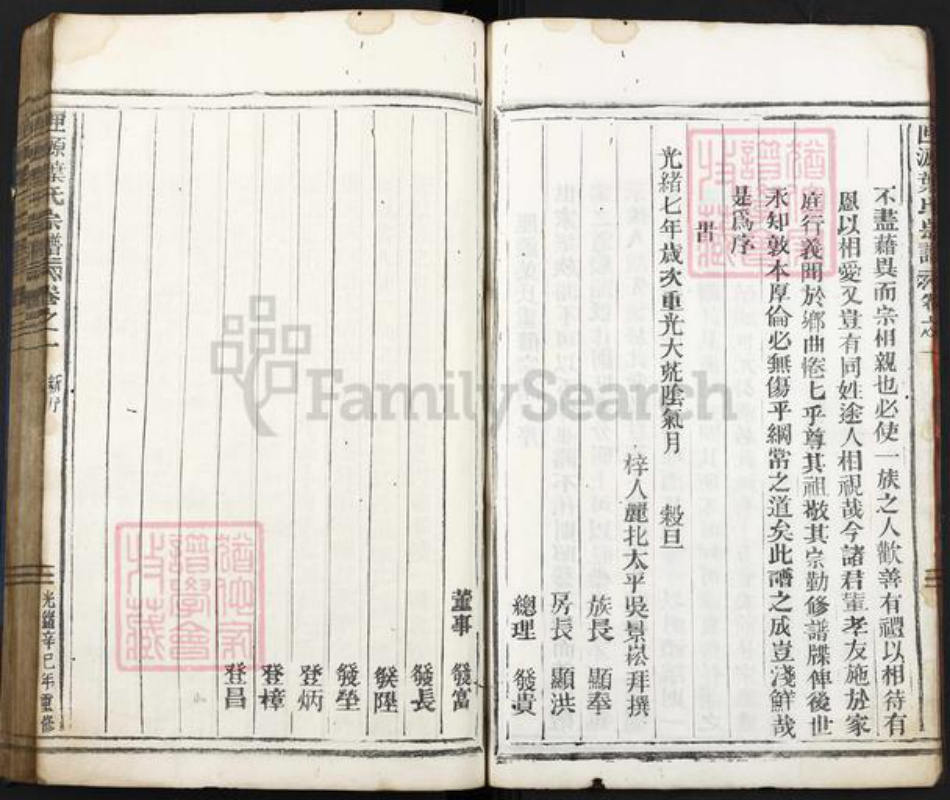 不盡藉具而宗相親也必使一族之人歡善有禮以相待有
恩以相愛又豈有同姓途人相視哉今諸君輩孝友施於家
庭行義聞於鄉曲惓七乎尊其祖敬其宗勤修譜牒俾後世
永知敦本厚倫必無傷乎綱常之道矣此譜之成豈淺鮮哉
是爲序
旹
光緒七年歲次重光大荒陰氣月 穀旦
梓人麗北太平吳景崧拜撰
族長 顯奉
房長 顯洪
總理 發貴
董事 發富
發長
發陞
發塋
登炳
登樟
登昌
葉氏宗譜 卷之一 新行
光緒辛巳年重修
FamilySearch